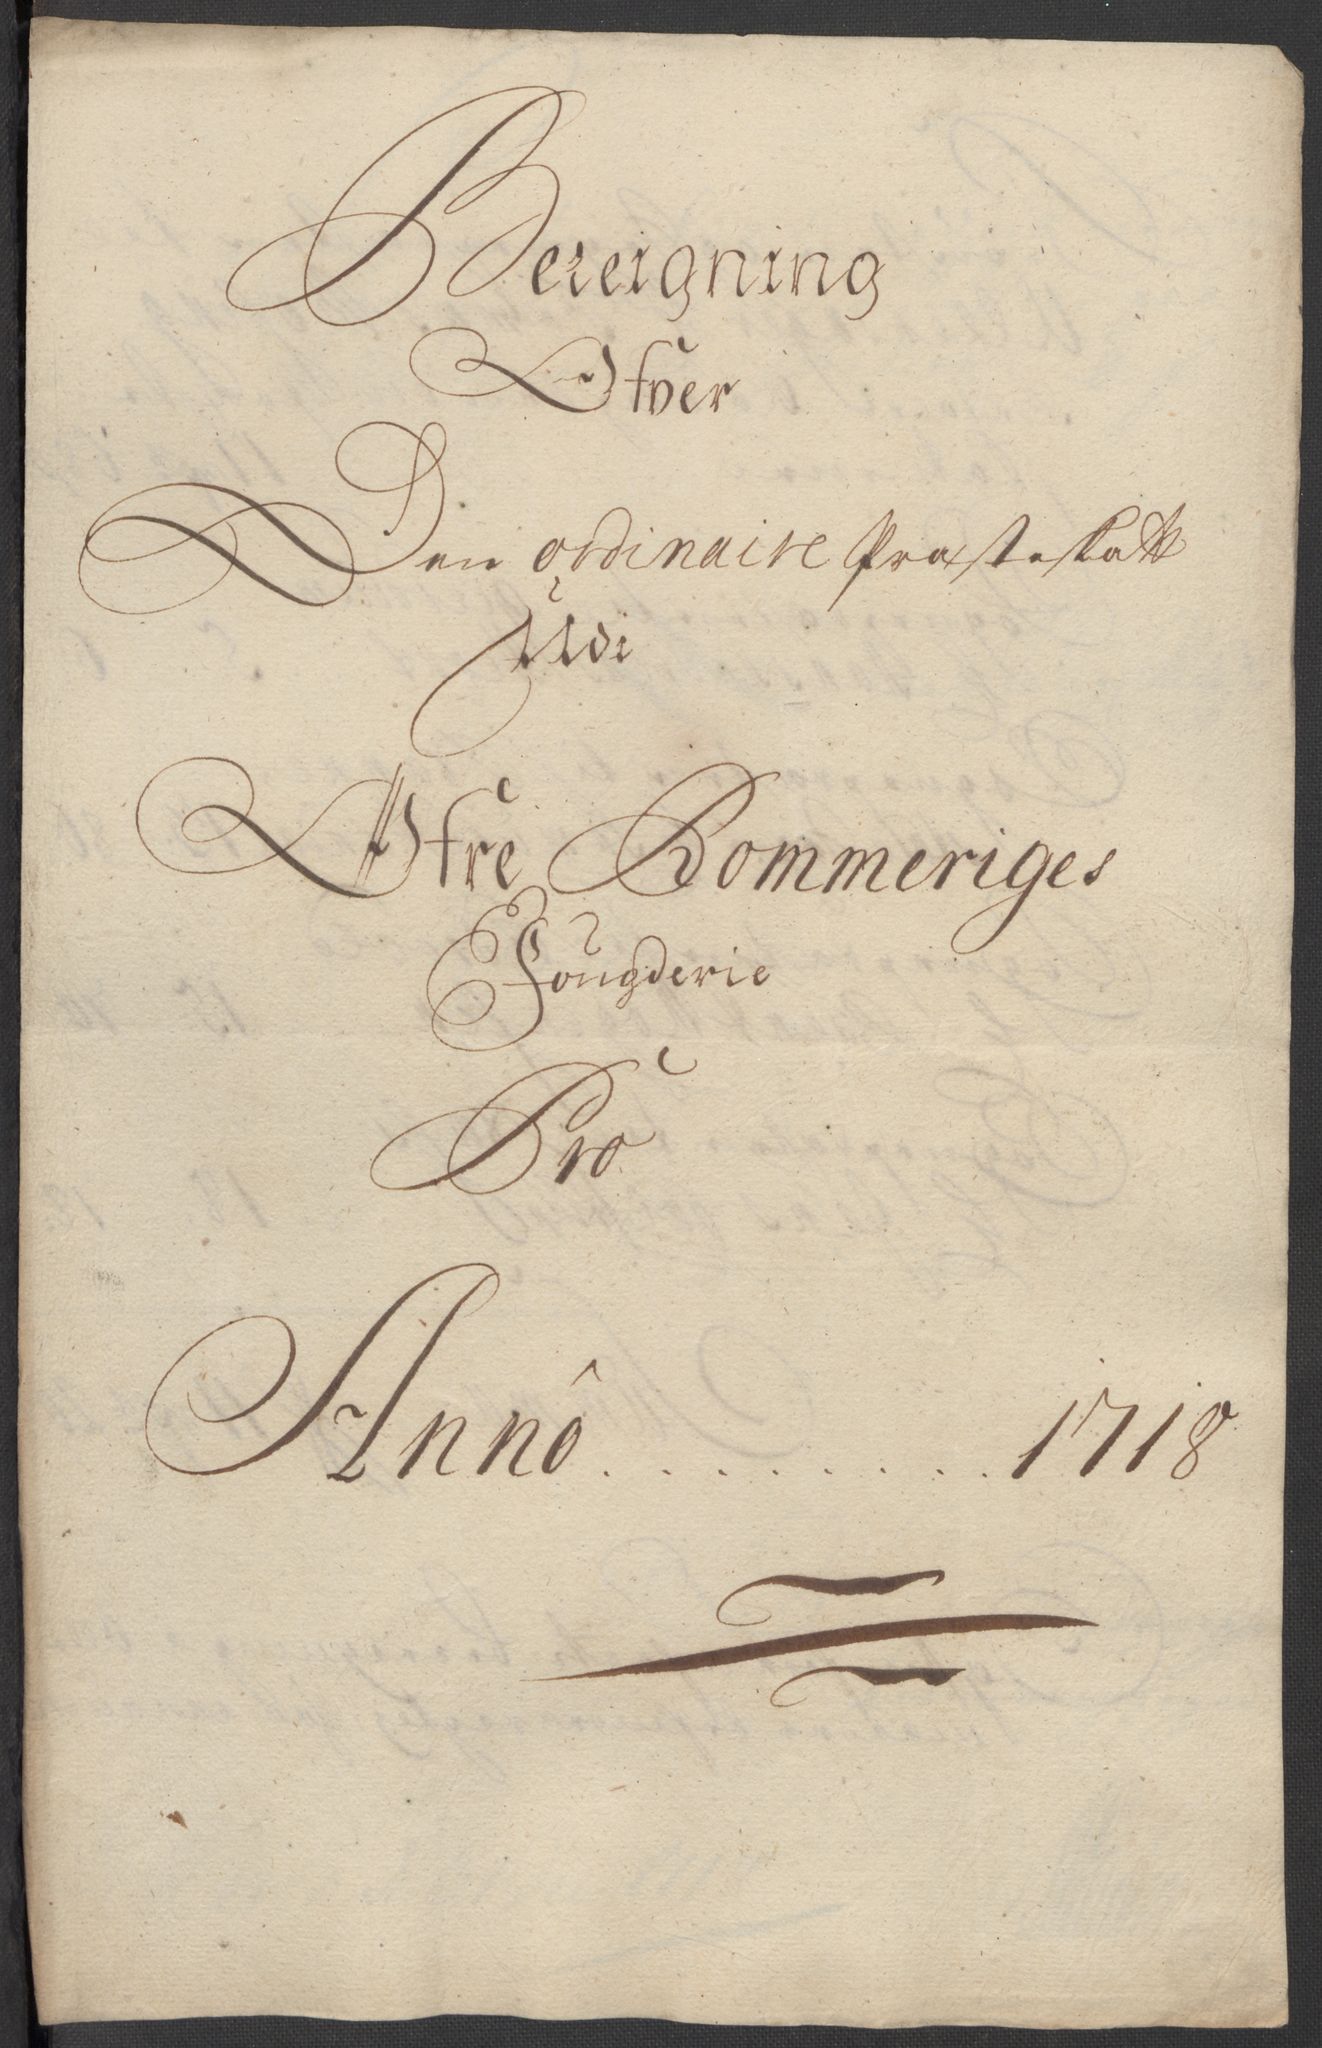 Bereigning
Ofver
Den ordinaire Præsteskatt
Udi
Øfre Rommeriges
Fougderie
Pro
Anno ......... 1718